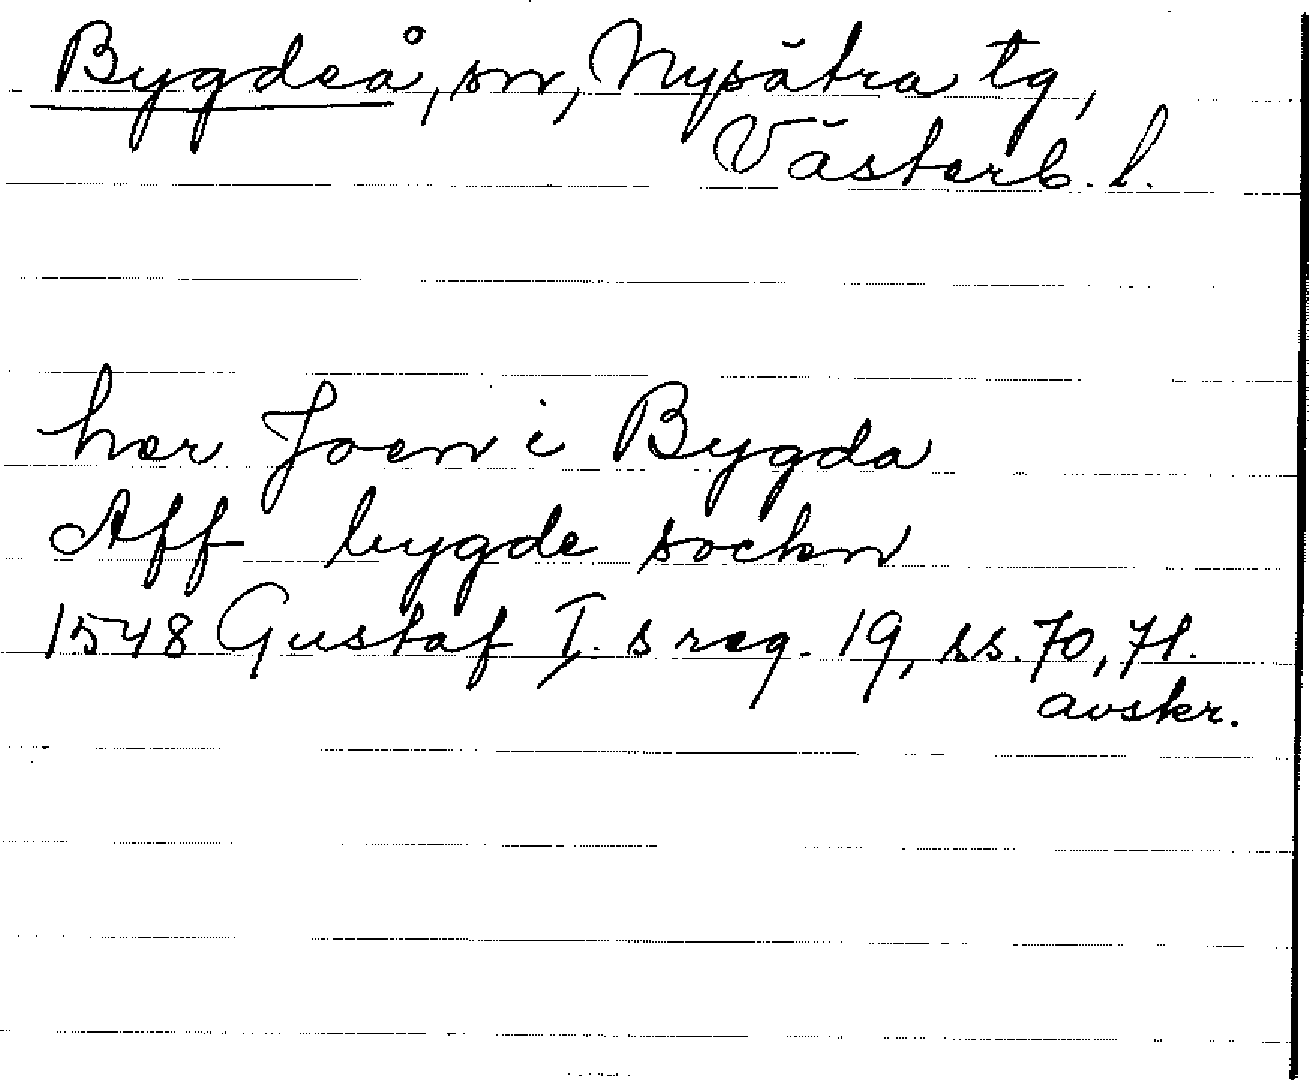 Bygdeå, sn, Nysätra tg,
Västerb. l.
her Joen i Bygda
Aff bygde sockn
1548 Gustaf I. s reg. 19, ss. 70, 71.
avskr.